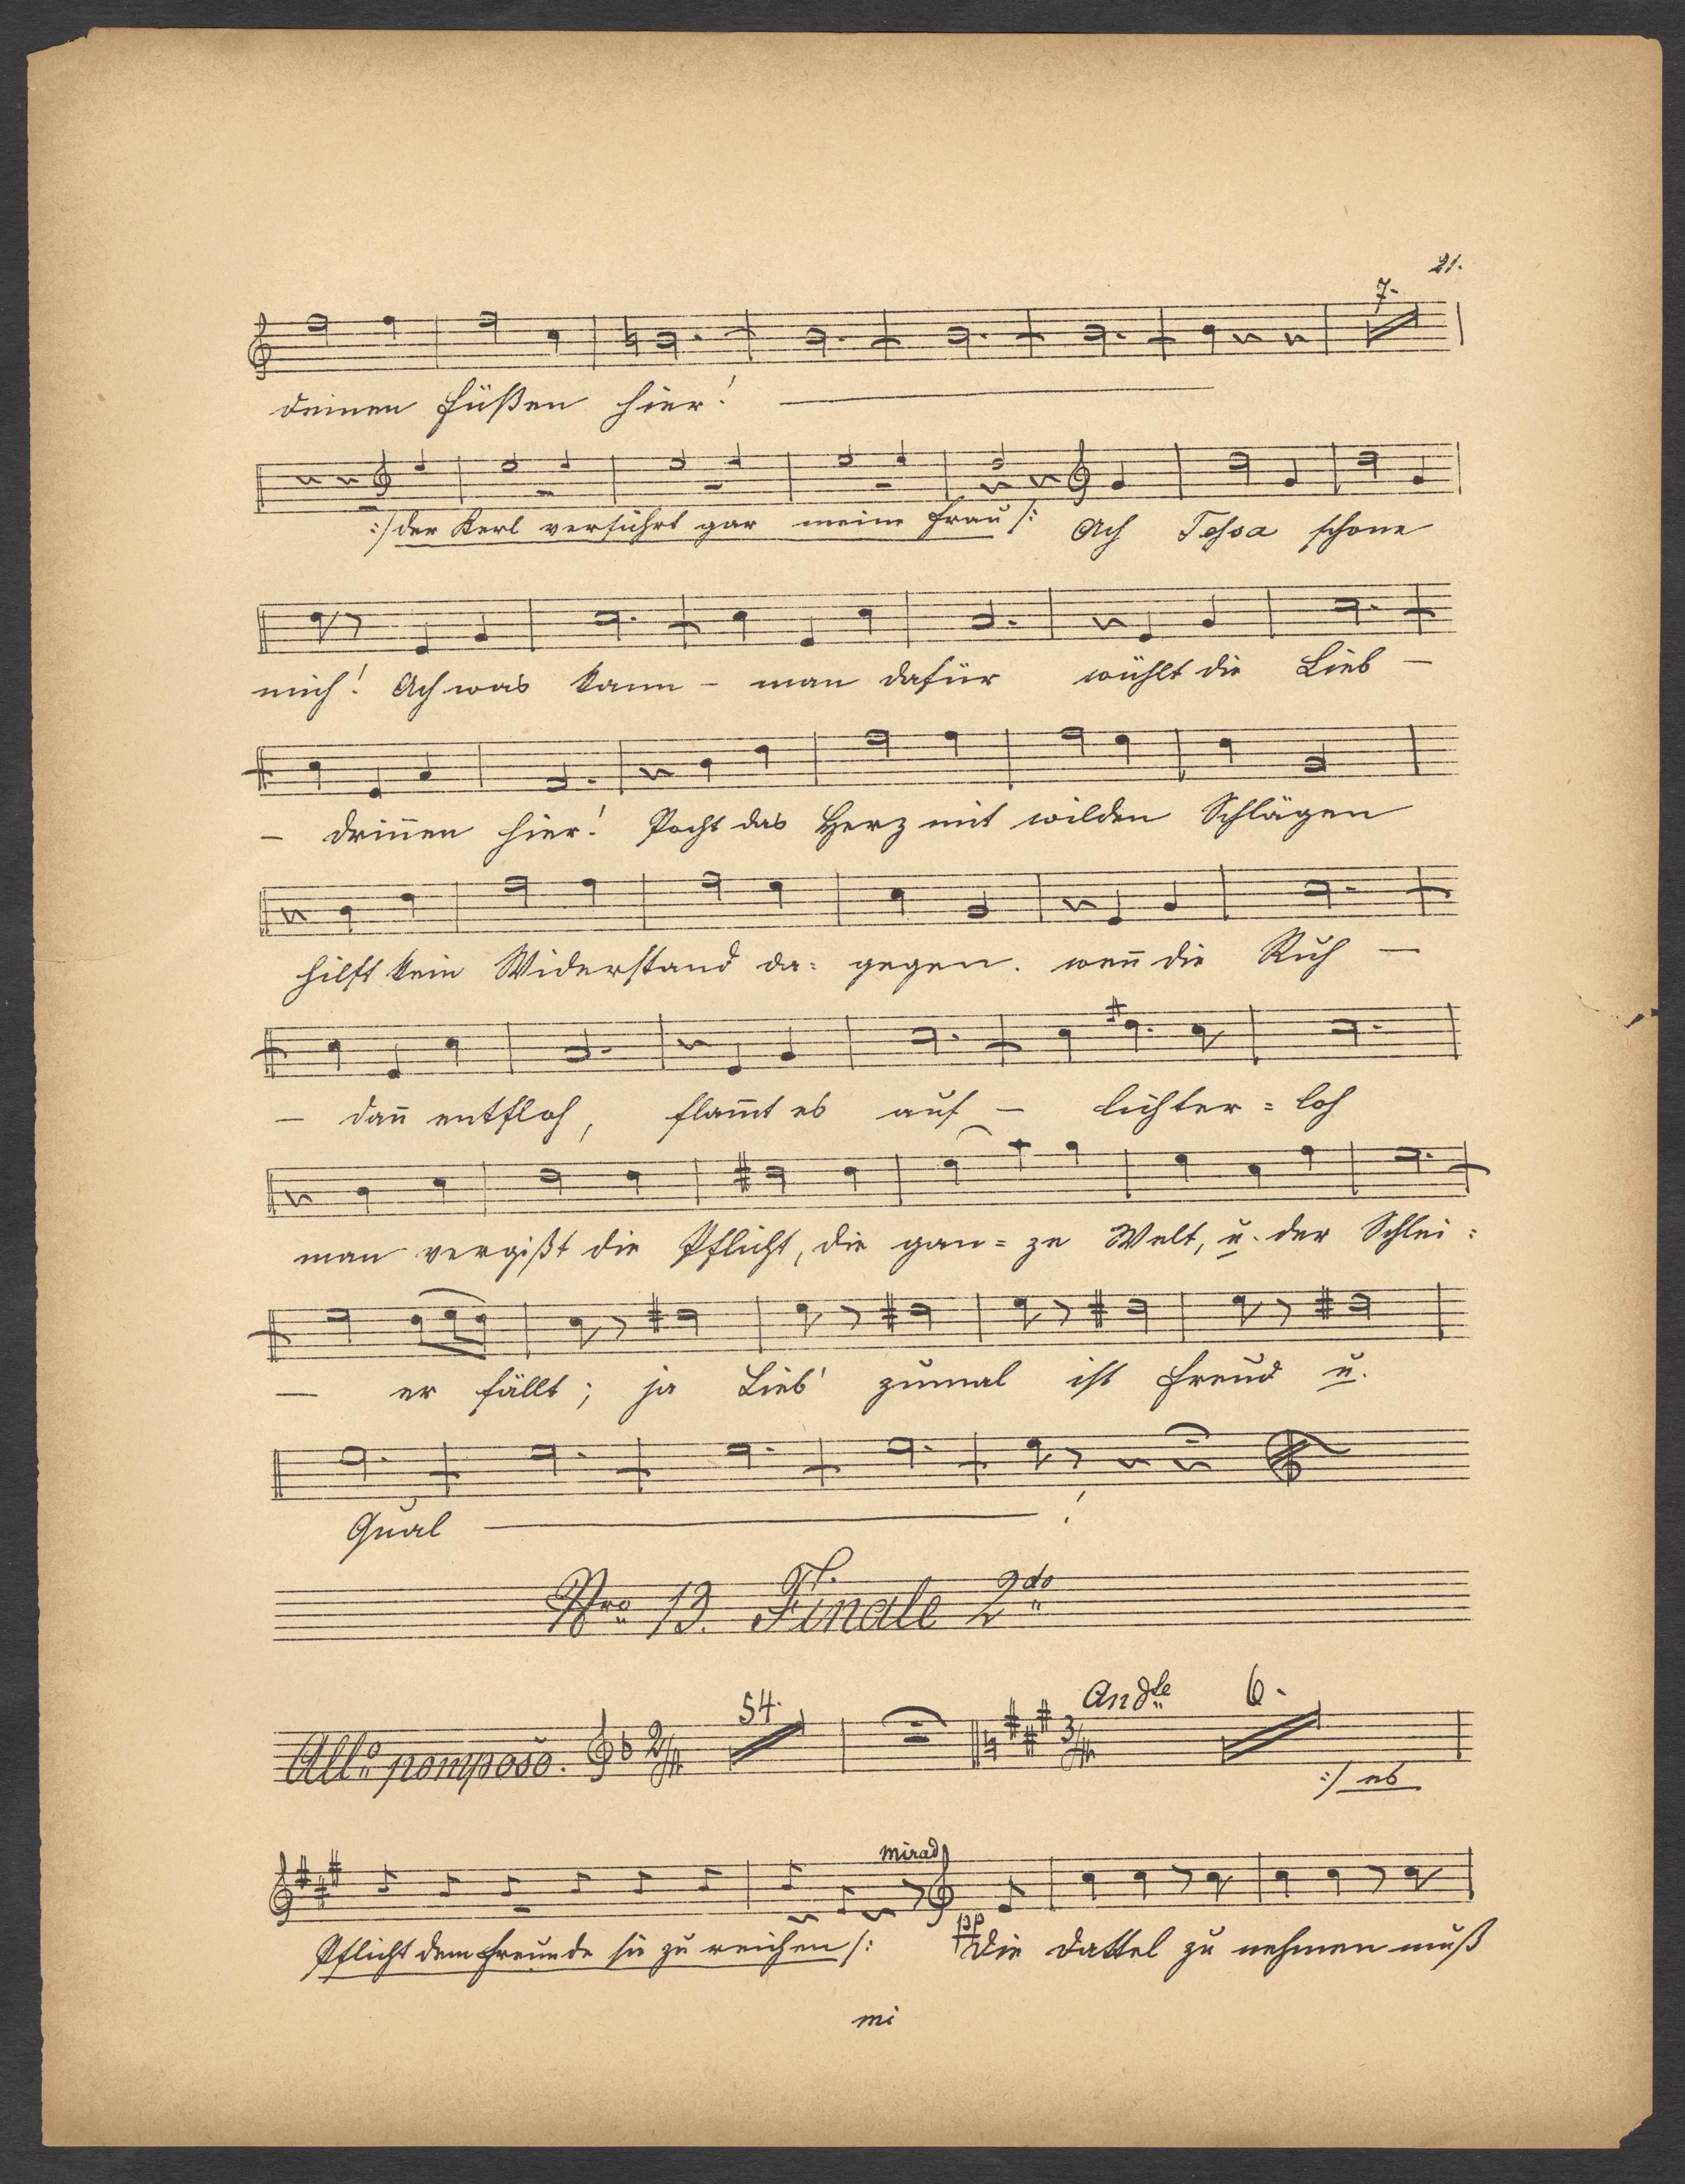 21.
7.
deinen Füßen hier!
:/ der Kerl verführt gar meine Frau /: Ach Tessa schone
mich! Ach was kann – man dafür wühlt die Lieb –
– drin̄en hier! Pocht das Herz mit wilden Schlägen
hilft kein Widerstand da= gegen. wen̄ die Ruh –
– dan̄ entfloh, flam̄t es auf – lichter = loh
man vergißt die Pflicht, die gan= ze Welt, u. der Schlei =
– er fällt; ja Lieb' zumal ist Freud u.
Qual !
Nro 13. Finale 2do
Andte 6.
54.
Allo pomposo. 2/4 3/4
:/ es
mirad
Pflicht dem Freunde sie zu reichen /: pp Die Dattel zu nehmen muß
mi